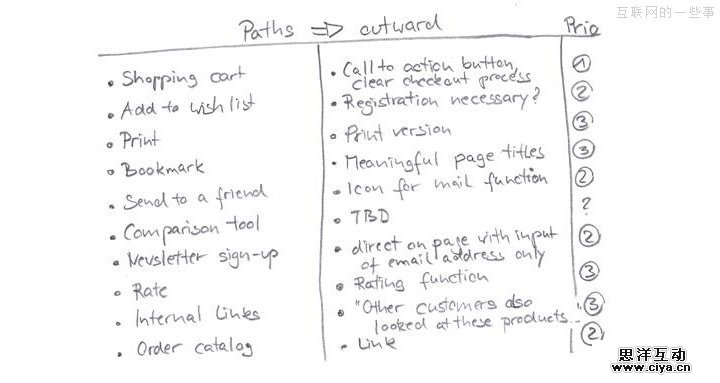 互联网的一些事
Paths => outward Prio
• Shopping cart • Call to action button, ①
clear checkout process
• Add to wish list • Registration necessary? ②
• Print • Print version ③
• Bookmark • Meaningful page titles ③
• Send to a friend • Icon for mail function ②
• Comparison tool • TBD ?
• Newsletter sign-up • direct on page with input ②
of email address only
• Rate • Rating function ③
• Internal Links • "Other customers also ③
looked at these products...
• Order catalog • Link ②
思洋互动
www.ciya.cn